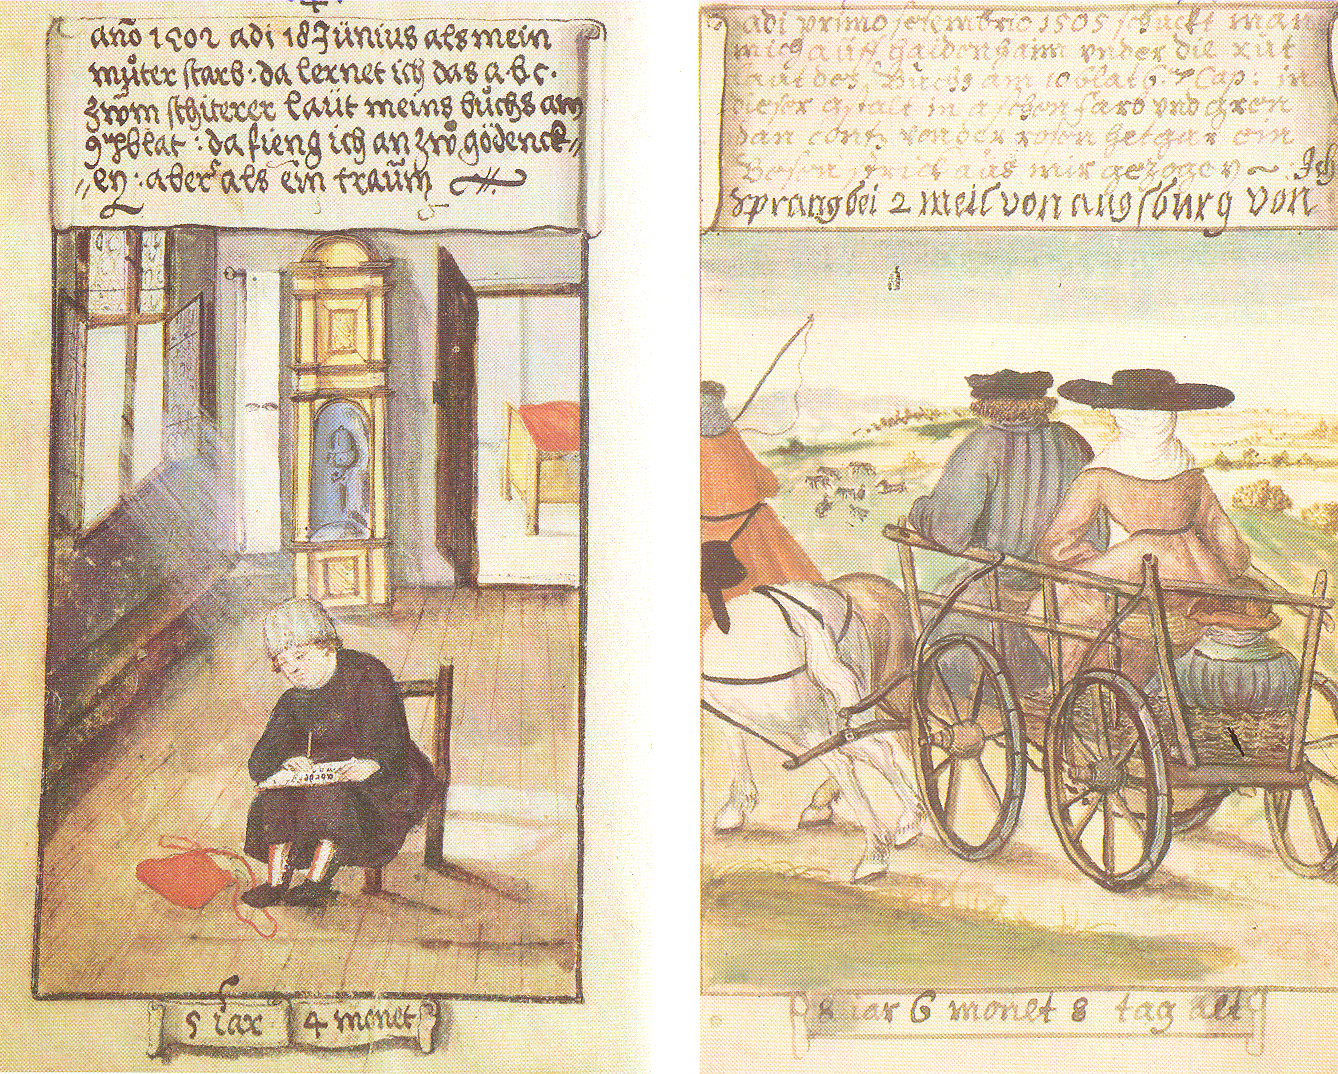 año 1502 adi 18 Junius als mein
můter starb · da lernet ich das a · b · c ·
zwm schiterer laüt meins bůchs am
9 blat : da fieng ich an zwͦ gödenck〃
〃en · aber als ein traům
5 iar 4 monet
adi primo setembrio 1505 schückt man
mich auff haidenhaim vnder die rüt
laut des Büchs am 10 blat 6 · 7 Cap : in
dieser gstalt in aschenfarb vnd gren
dan contz von der rosen hetgar ein
Bösen strick aus mir gezogen ~ Jch
sprang bei 2 meil von augsburg von
8 iar 6 monet 8 tag alt